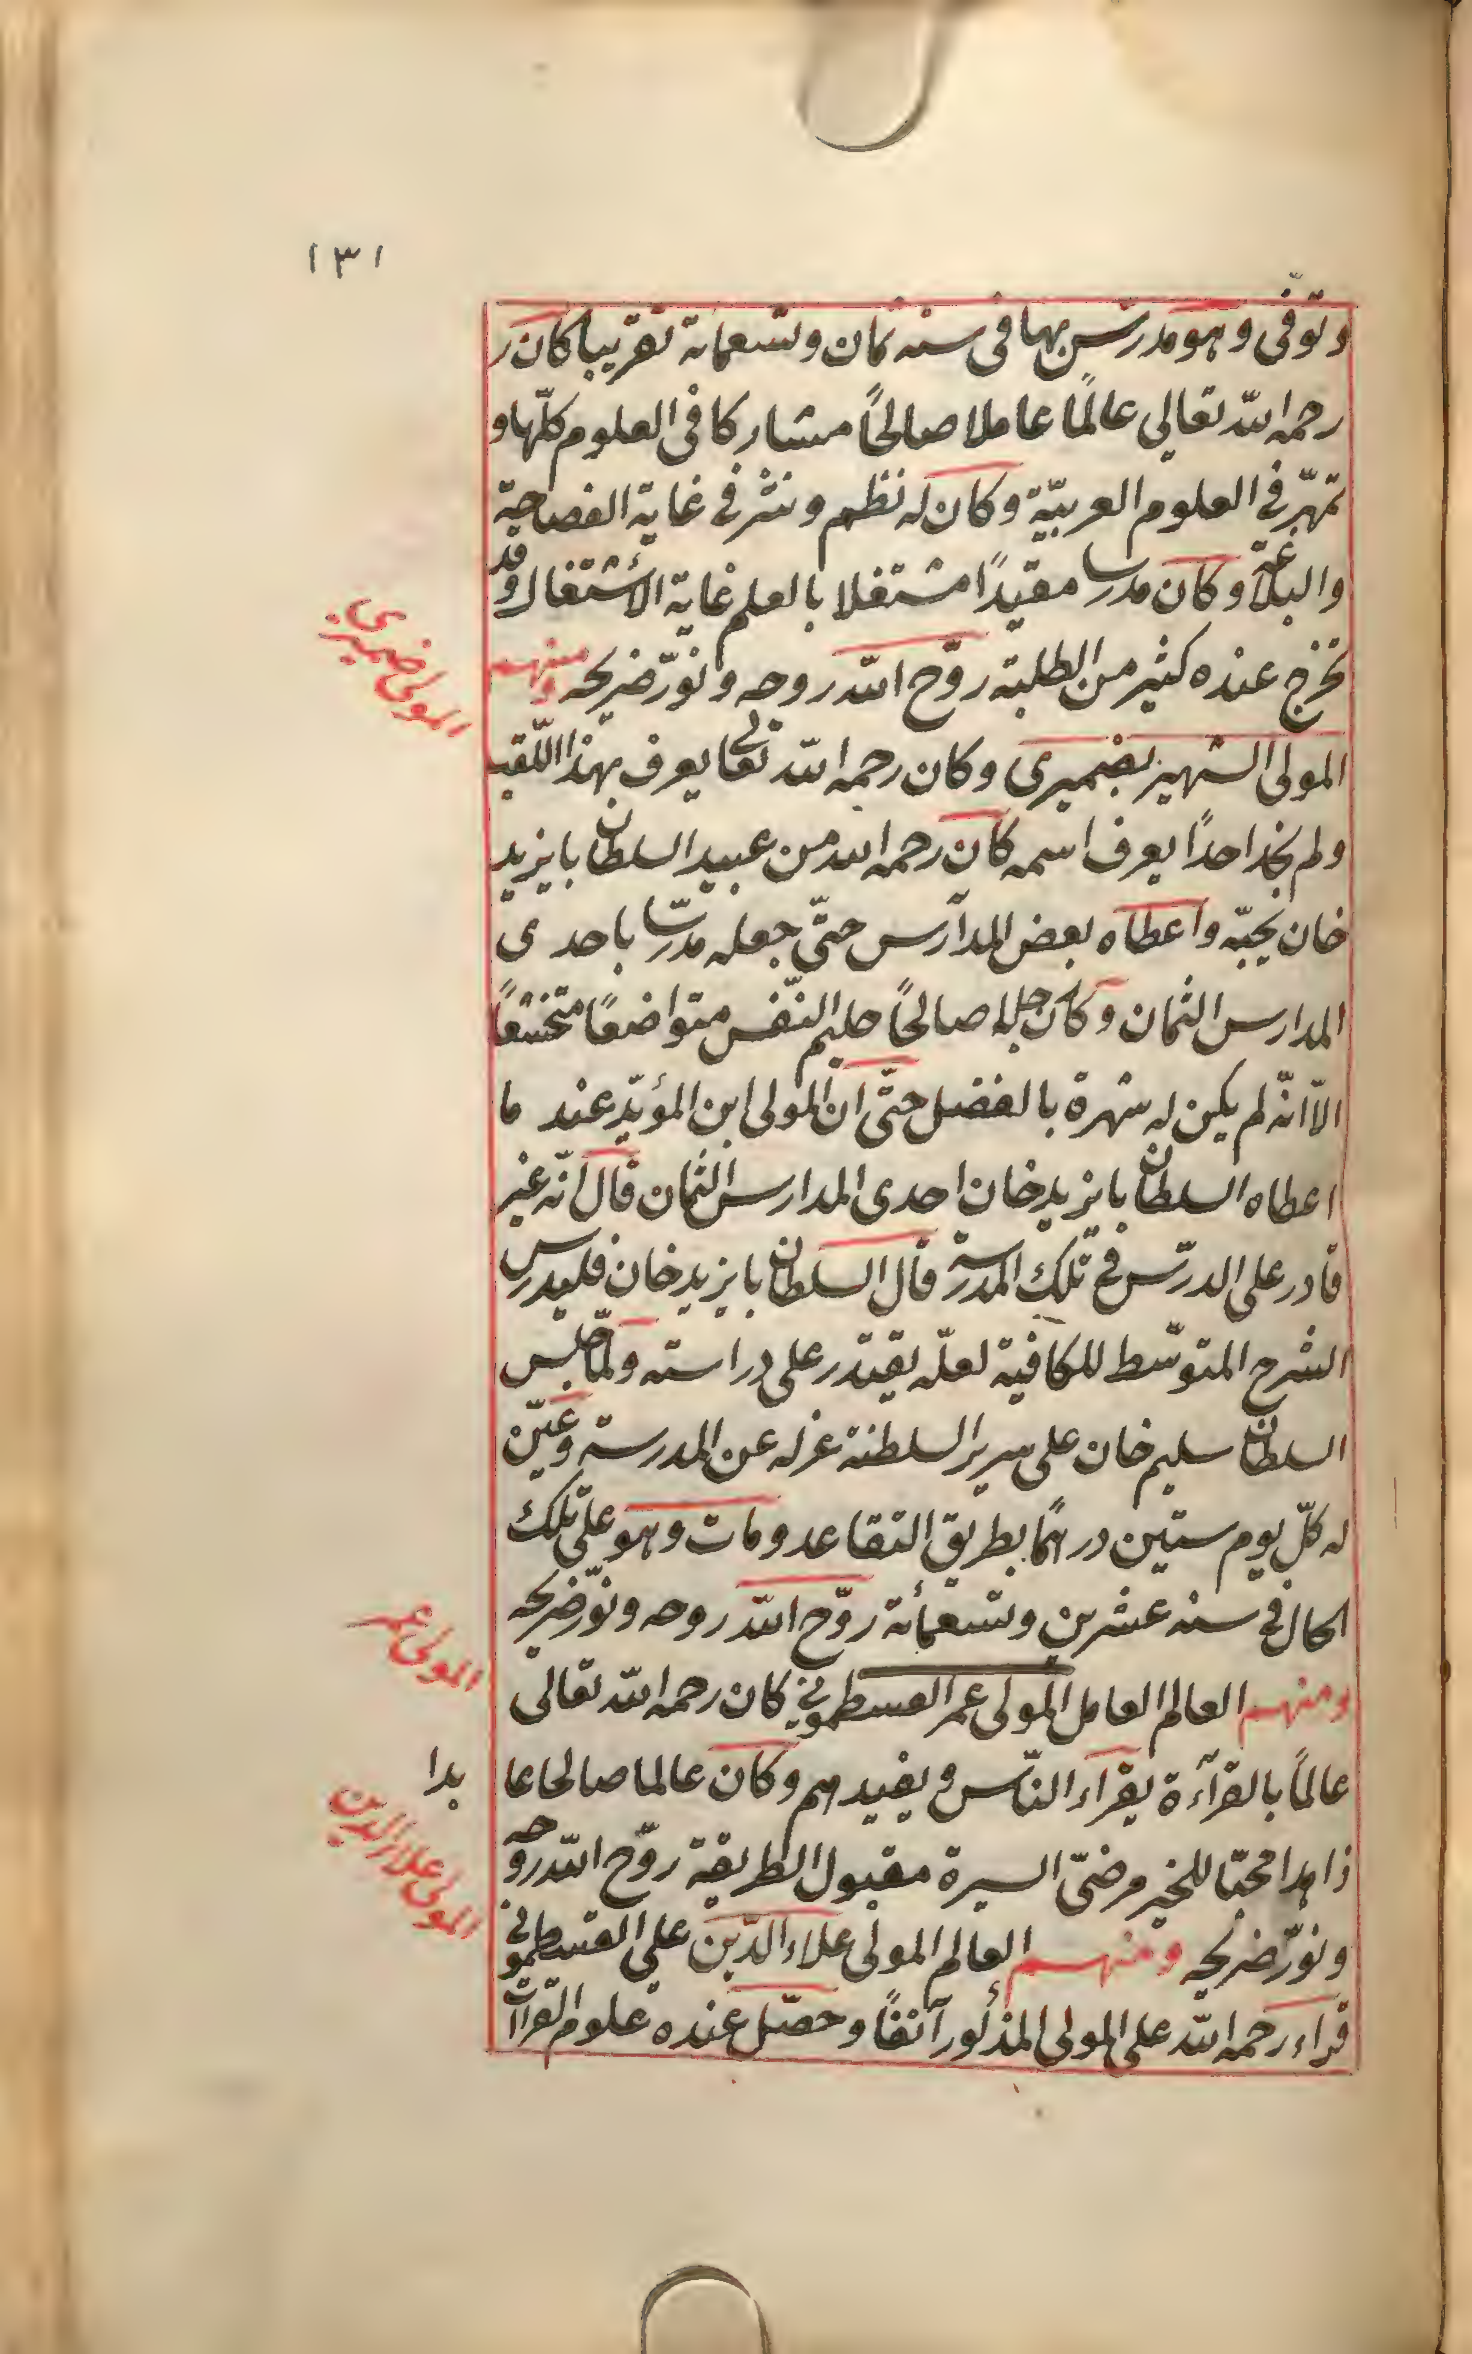 ١٣١
وتوفّى وهو مدرّس بها فى سنه ثمان وتسعمائة تقريبا كان ر
رحمه الله تعالى عالمًا عاملا صالحًا مشاركا فى العلوم كلّها و
تمهّر فى العلوم العربيّة وكان له نظم ونثر فى غاية الفصاحة
والبلاغة وكان مدرسا مفيدًا مشتغلا بالعلم غاية الأشتغال وقد
تخرج عنده كثير من الطلبة روّح الله روحه ونوّر ضريحه ومنهم
المولى ضميرى
المولى الشهير بضميرى وكان رحمه الله تعالى يعرف بهذا اللّقب
ولم نجد احدًا يعرف اسمه كان رحمه الله من عبيد السلطان بايزيد
خان يحبّه واعطاه بعض المدارس حتّى جعله مدرّسا باحدى
المدارس الثمان وكان صالحًا حليم النّفس متواضعًا متخشعًا
الاّ انّه لم يكن له شهرة بالفضل حتّى ان المولى ابن المؤيّد عند ما
اعطاه السلطان بايزيد خان احدى المدارس الثمان قال انّه غير
قادر على الدرّس فى تلك المدرسة قال السلطان بايزيد خان فليدرس
الشرح المتوسّط للكافية لعلّه يقتدر على دراسته ولمّا جلس
السلطان سليم خان على سرير السلطنة عزله عن المدرسة وعيّن
له كلّ يوم ستين درهمًا بطريق التقاعد ومات وهو على تلك
الحال فى سنه عشرين وتسعمأئة روّح الله روحه ونوّر ضريحه
المولى عمر
ومنهم العالم العامل المولى عمر القسطمونى كان رحمه الله تعالى
عالمًا بالقرآءة يقراء النّاس ويفيدهم وكان عالما صالحا عا
بدا
زاهدا محبّا للخير مرضىّ السيرة مقبول الطريقة روّح الله روحه
المولى علاء الدين
ونوّر ضريحه ومنهم العالم المولى علاء الدّين على القسطمونى
قراء رحمه الله على المولى المذكور آنفًا وحصّل عنده علوم القراآت